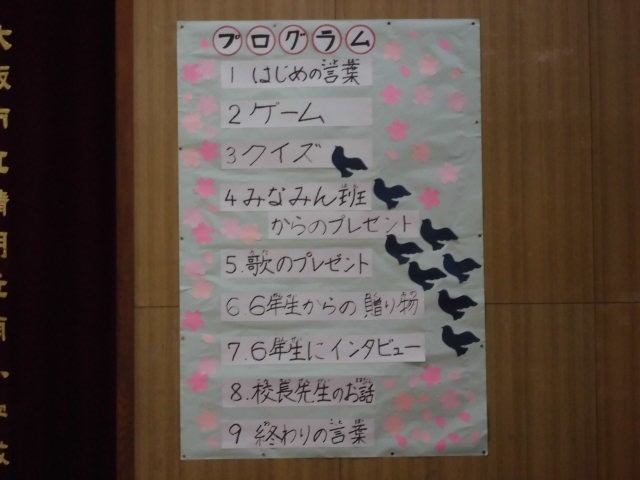 プログラム
1 はじめの言葉
2 ゲーム
3 クイズ
4 みなみん班
からのプレゼント
5.歌のプレゼント
6 6年生からの贈り物
7.6年生にインタビュー
8.校長先生のお話
9 終わりの言葉
大阪市立